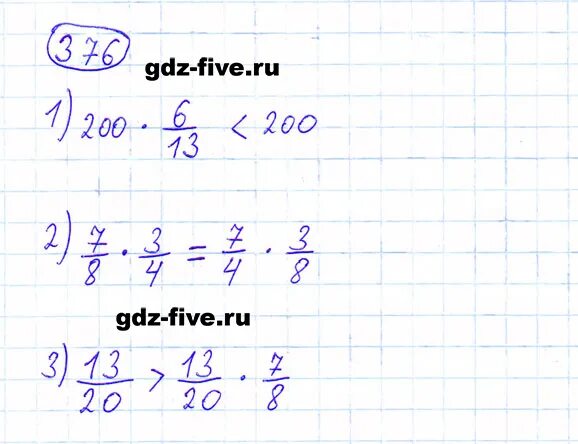 376
gdz-five.ru
1) 200 · 6/13 < 200
2) 7/8 · 3/4 = 7/4 · 3/8
gdz-five.ru
3) 13/20 > 13/20 · 7/8